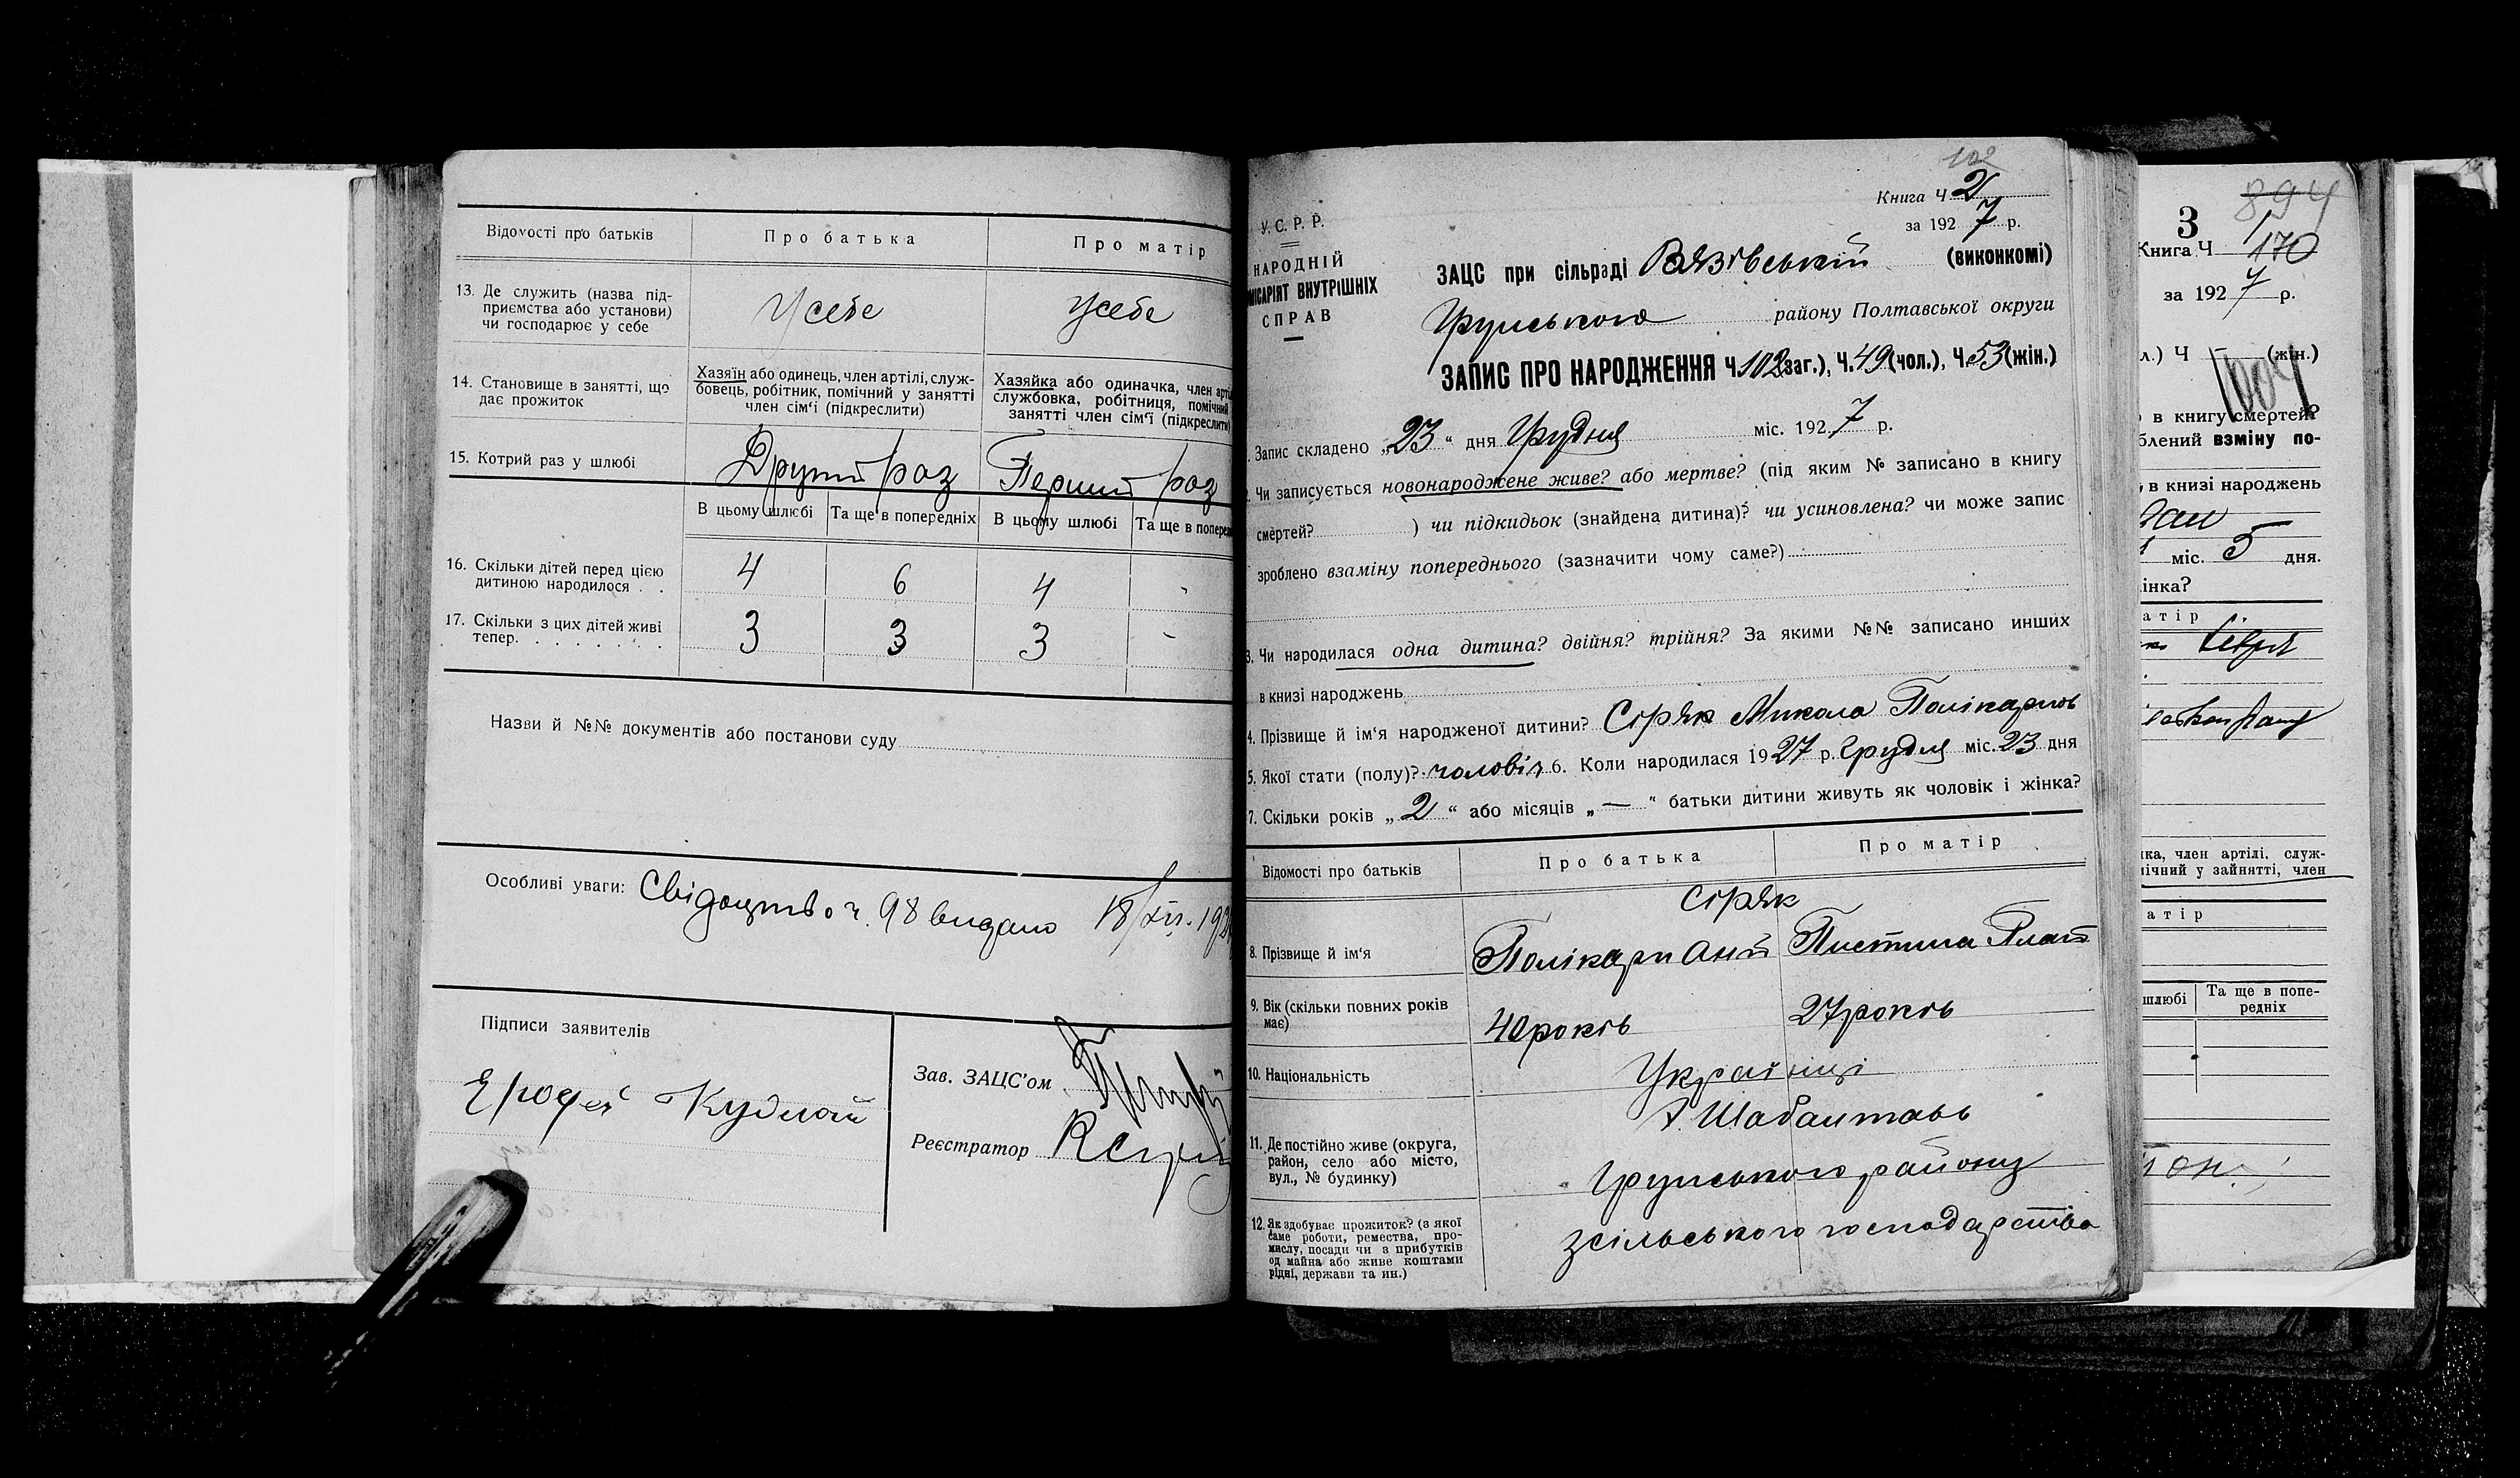 Відомості про батьків
Про батька
Про матір
13. Де служить (назва під-
приємства або установи)
чи господарює у себе
Усебе
Усебе
14. Становище в занятті, що
дає прожиток
Хазяїн або одинець, член артілі, служ-
бовець, робітник, помічний у занятті
член сім'ї (підкреслити)
Хазяйка або одиначка, член арті
службовка, робітниця, помічний
занятті член сім'ї (підкреслити)
15. Котрий раз у шлюбі
Другий раз
Перший раз
В цьому шлюбі
Та ще в попередніх
В цьому шлюбі
Та ще в попере
16. Скільки дітей перед цією
дитиною народилося . .
4
6
4
-
17. Скільки з цих дітей живі
тепер. . . . . . . .
3
3
3
-
Назви й №№ документів або постанови суду
Особливі уваги: Свідоцтво ч. 98 видано 18/XII. 192
Підписи заявителів
Єрофей Кудлай
Зав. ЗАЦС'ом
Реєстратор
102
Книга Ч 2
за 1927 р.
У. С. Р. Р.
НАРОДНІЙ
МІСАРІЯТ ВНУТРІШНІХ
СПРАВ
ЗАЦС при сільраді Вязівській (виконкомі)
Грунського району Полтавської округи
ЗАПИС ПРО НАРОДЖЕННЯ Ч. 102 (заг.), Ч. 49 (чол.), Ч. 53 (жін.)
Запис складено „23" дня Грудня міс. 1927 р.
Чи записується новонароджене живе? або мертве? (під яким № записано в книгу
смертей? ) чи підкидьок (знайдена дитина)? чи усиновлена? чи може запис
зроблено взаміну попереднього (зазначити чому саме?)
3. Чи народилася одна дитина? двійня? трійня? За якими №№ записано инших
в книзі народжень
4. Прізвище й ім'я народженої дитини? Сіряк Микола Полікарпов
5. Якої стати (полу)? чоловіч 6. Коли народилася 1927 р. Грудня міс. 23 дня
7. Скільки років „2" або місяців „—" батьки дитини живуть як чоловік і жінка?
Відомості про батьків
Про батька
Про матір
Сіряк
8. Прізвище й ім'я
Полікарп Ант
Пистина Плат
9. Вік (скільки повних років
має)
40 років
27 років
10. Національність
Українці
11. Де постійно живе (округа,
район, село або місто,
вул., № будинку)
Грунського району
12. Як здобуває прожиток? (з якої
саме роботи, ремества, про-
мислу, посади чи з прибутків
од майна або живе коштами
рідні, держави та ин.)
з сільського господарства
3
894
Книга Ч 170
за 1927 р.
л.) Ч — (жін.)
в книгу смертей?
блений взміну по-
в книзі народжень
міс. 5 дня.
інка?
атір
ка, член артілі, служ-
ічний у зайнятті, член
атір
шлюбі
Та ще в попе-
редніх